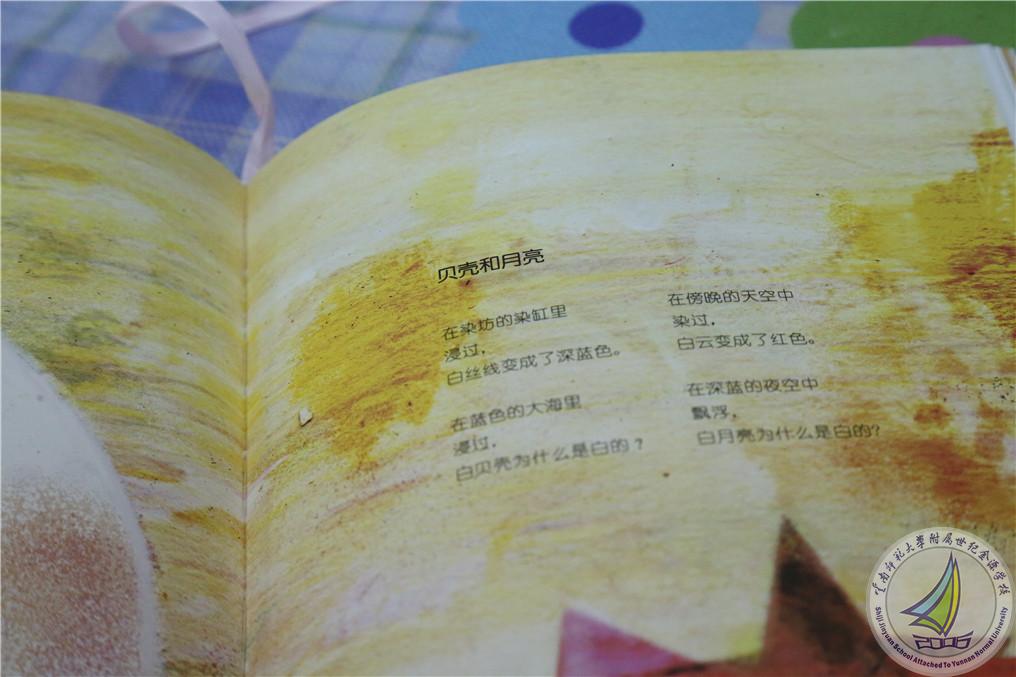 贝壳和月亮
在染坊的染缸里
浸过，
白丝线变成了深蓝色。
在蓝色的大海里
浸过，
白贝壳为什么是白的？
在傍晚的天空中
染过，
白云变成了红色。
在深蓝的夜空中
飘浮，
白月亮为什么是白的？
雲南师范大學附属世纪金源学校
Shiji Jinyuan School Attached To Yunnan Normal University
2006